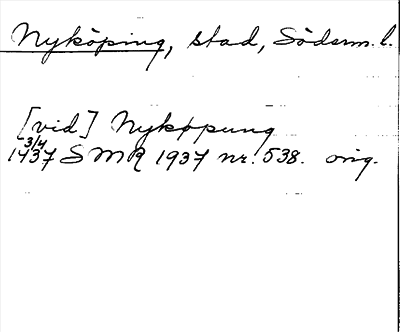 Nyköping, stad, Söderm. l.
[vid] Nykøpung
3/4
1437 SMR 1937 nr. 538. orig.